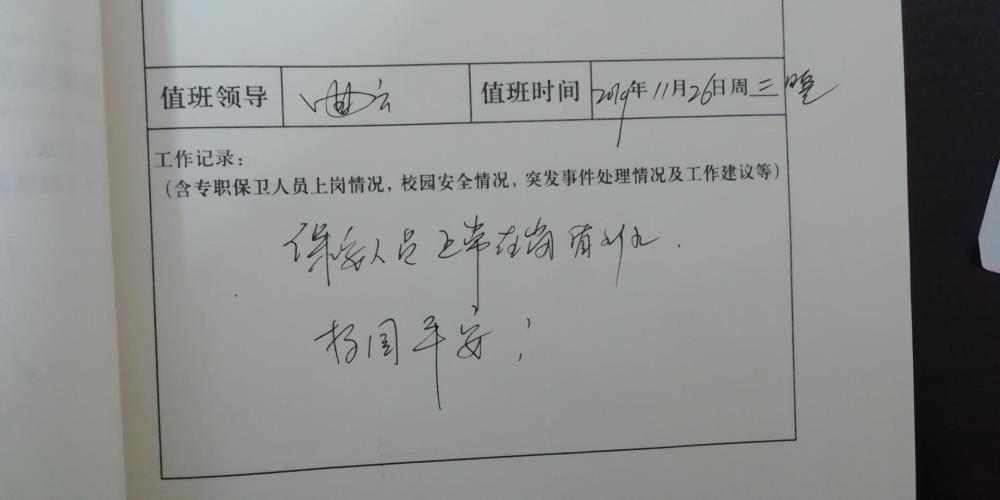 值班领导 曲云 值班时间 2019年11月26日周三晚
工作记录：
（含专职保卫人员上岗情况，校园安全情况，突发事件处理情况及工作建议等）
保安人员正常在岗
校园平安；